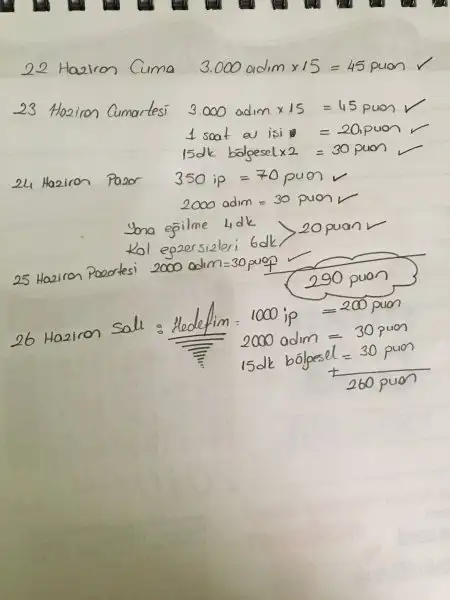 22 Haziran Cuma 3.000 adım x 15 = 45 puan ✓
23 Haziran Cumartesi 3.000 adım x 15 = 45 puan ✓
1 saat ev işi = 20 puan ✓
15dk bölgesel x 2 = 30 puan ✓
24 Haziran Pazar 350 ip = 70 puan ✓
2000 adım = 30 puan ✓
Yana eğilme 4 dk
Kol egzersizleri 6dk > 20 puan ✓
25 Haziran Pazartesi 2000 adım = 30 puan ✓
+
290 puan
26 Haziran Salı : Hedefim : 1000 ip = 200 puan
2000 adım = 30 puan
15dk bölgesel = 30 puan
+
260 puan